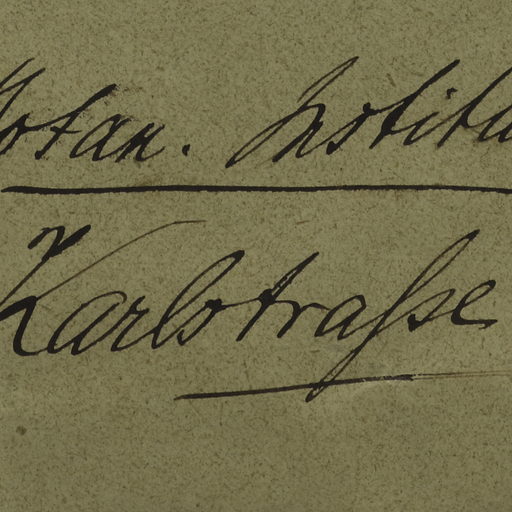 Botan. Institu
Karlstraße